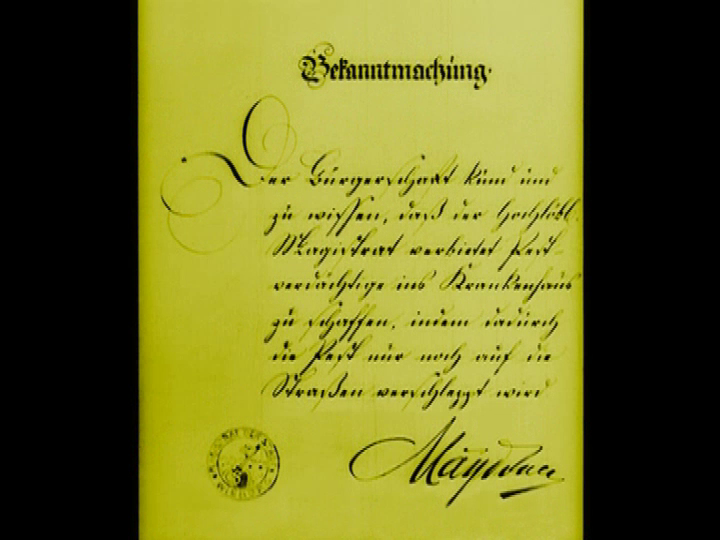 Bekanntmachung.
Der Bürgerschaft kund und
zu wissen, daß der Hochlöbl.
Magistrat verbietet Pest-
verdächtige ins Krankenhaus
zu schaffen, indem dadurch
die Pest nur noch auf die
Straßen verschleppt wird